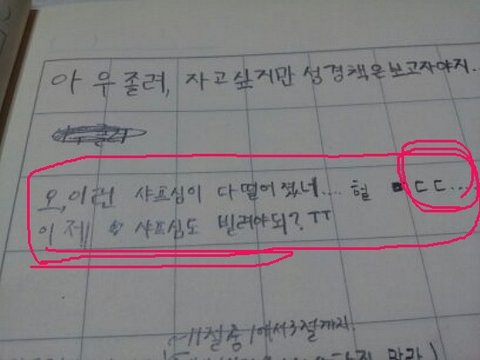 아우졸려, 자고싶지만 성경책은보고자야지.
오, 이런 샤프심이 다떨어졌네.... 헐 ㄷㄷ...
이제 샤프심도 빌려야되? ㅠㅠ
11절중 1에서3절까지